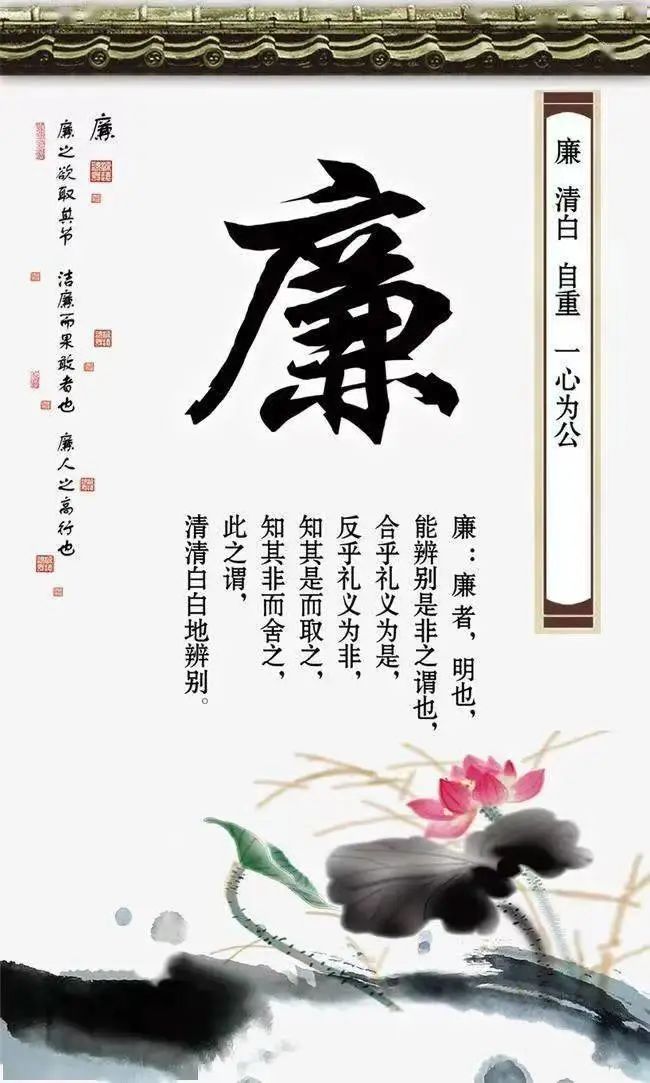 廉 清白 自重 一心为公
廉
廉：廉者，明也，
能辨别是非之谓也，
合乎礼义为是，
反乎礼义为非，
知其是而取之，
知其非而舍之，
此之谓，
清清白白地辨别。
廉
廉之欲取其节 洁廉而果敢者也 廉人之高行也